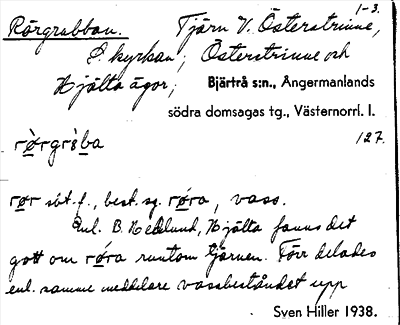 1-3.
Rörgrubban. Tjärn V. Österstrinne,
S. kyrkan; Österstrinne och
Hjälta ägor; Bjärtrå s:n., Ångermanlands
södra domsagas tg., Västernorrl. l.
127.
rør sbt. f., best. sg. røra, vass.
Enl. B. Hedlund, Hjälta fanns det
gott om røra runtom tjärnen. Förr delades
enl. samme meddelare vassbeståndet upp
Sven Hiller 1938.